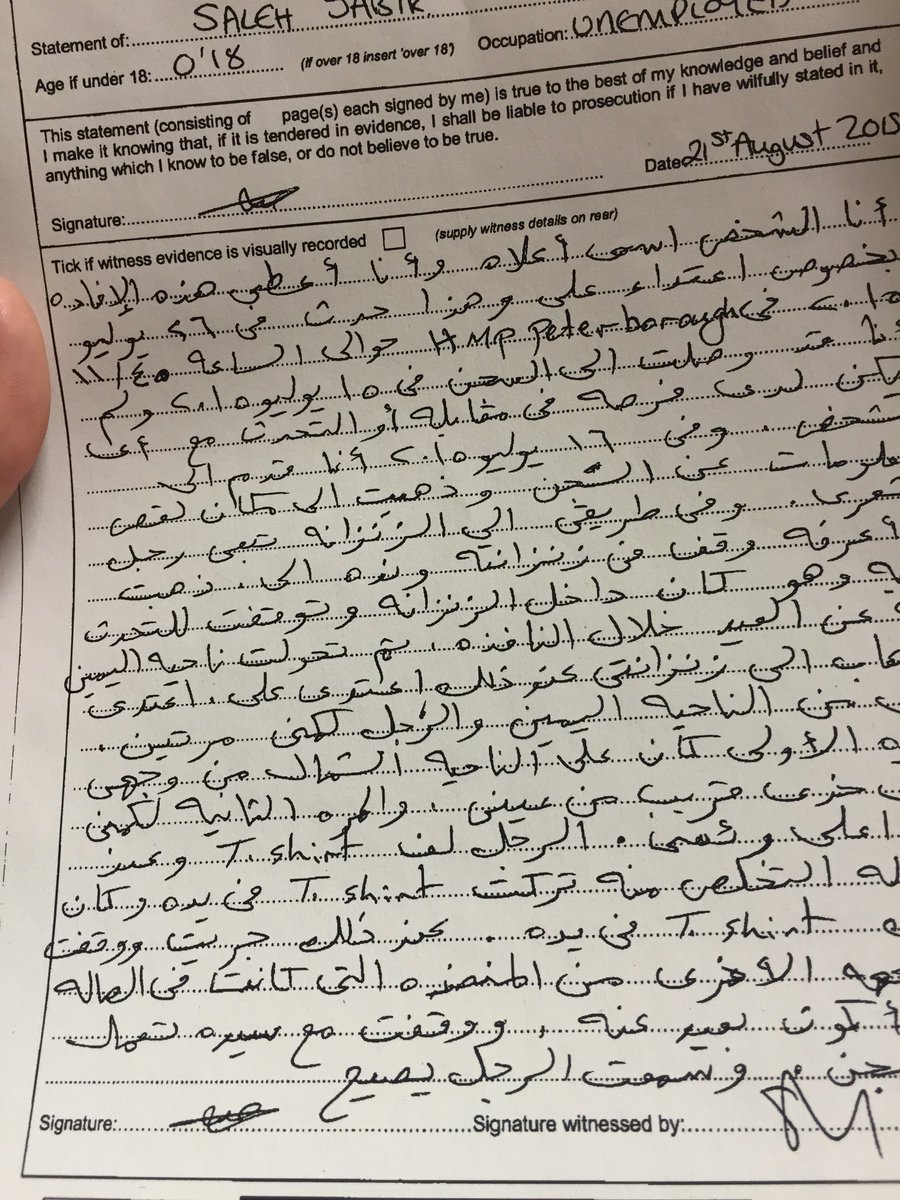 Statement of: SALEH JABIR
Age if under 18: O'18 (if over 18 insert 'over 18') Occupation: UNEMPLOYED
This statement (consisting of page(s) each signed by me) is true to the best of my knowledge and belief and
I make it knowing that, if it is tendered in evidence, I shall be liable to prosecution if I have wilfully stated in it,
anything which I know to be false, or do not believe to be true.
Signature: Date: 21st August 2015
Tick if witness evidence is visually recorded (supply witness details on rear)
أنا الشخص اسمى أعلاه وأنا أعطى هذه الإفاده
بخصوص اعتداء على وهذا حدث فى ٢٦ يوليو
٢٠١٥ فى HMP Peterborough حوالى الساعة ١١/٤٥
أنا عند وصلت الى السجن فى ١٥ يوليو ٢٠١٥ ولم
لدى فرصه فى مقابله أو التحدث مع أى
شخص . وفى ١٦ يوليو ٢٠١٥ أنا قدم الى
عن السجن وذهبت الى مكان لقص
وفى طريقى الى الزنزانه رجل
أعرفه وقف من زنزانته الى . ذهبت
وهو كان داخل الزنزانه وتوقفت للتحدث
عن العيد خلال النافذه ، ثم تحولت ناحيه اليمين
الى زنزانتى عند ذلك اعتدى على ، اعتدى
من الناحيه اليمين والرجل لكمنى مرتين .
الأولى كان على الناحيه الشمال من وجهى
قريب من عينى ، والمره الثانيه لكمنى
اعلى و فمى . الرجل لف T. shirt وعند
التخلص منه تركت T. shirt فى يده وكان
T. shirt فى يده . بعد ذلك جريت ووقفت
الأخرى من المنضده التى كانت فى الصاله
أكون بعيد عنه ، ووقفت مع سيده تعمل
وسمعت الرجل يصيح
Signature: Signature witnessed by: